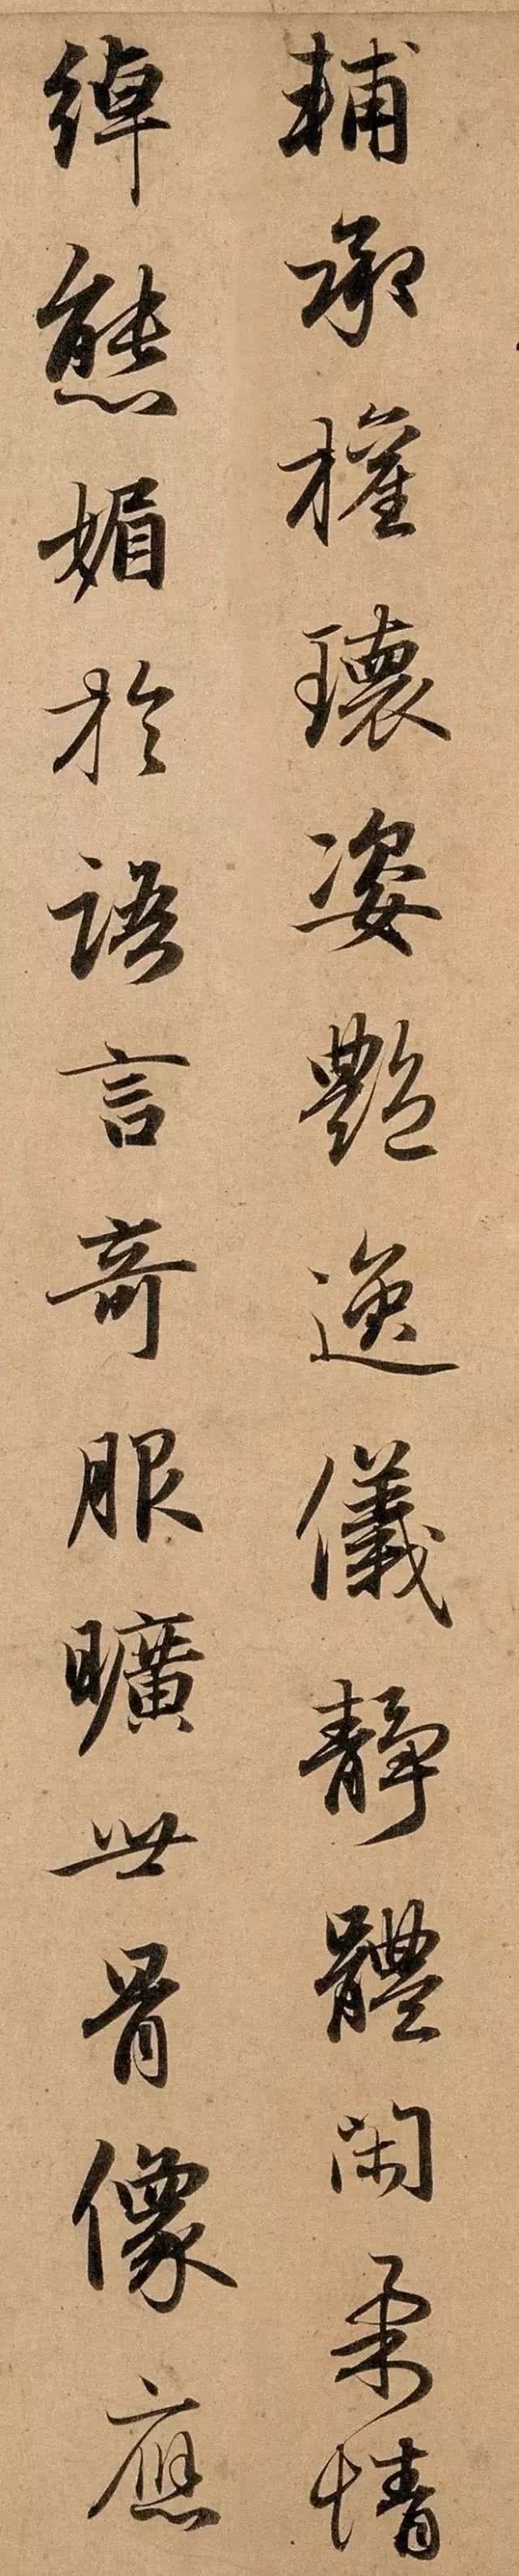 輔承權瓌姿艷逸儀靜體閑柔情
綽態媚於語言奇服曠世骨像應